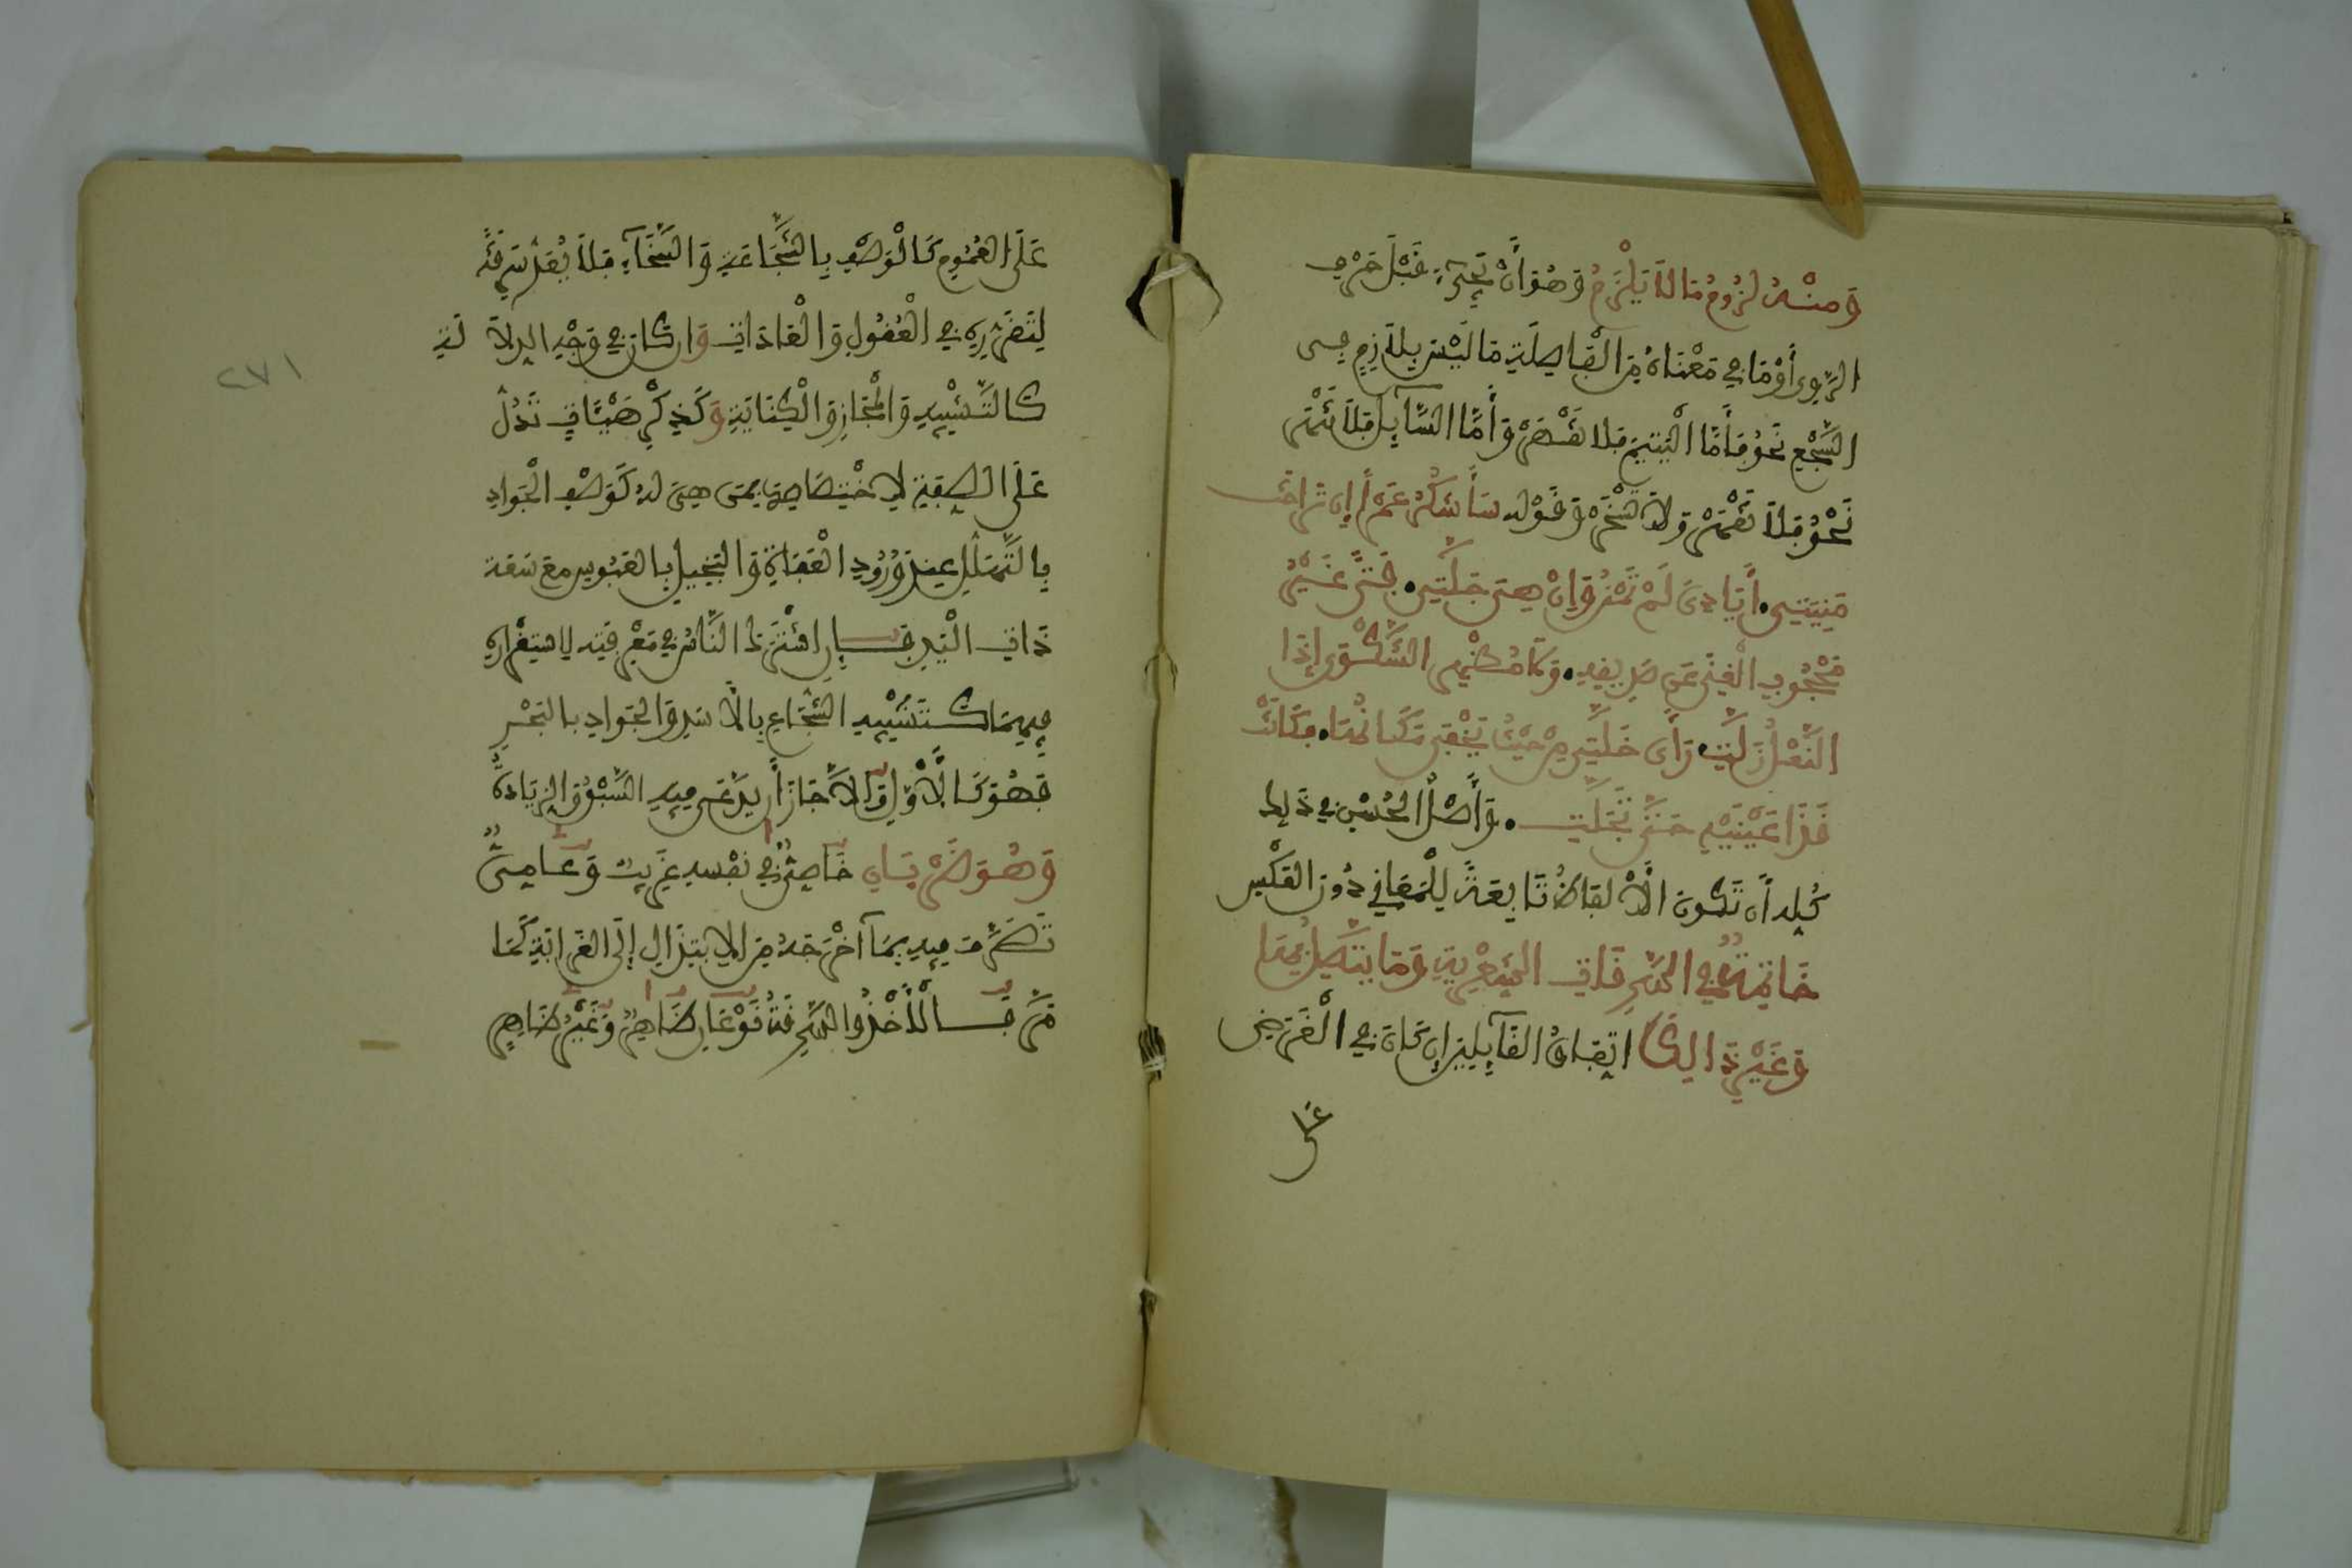 وَمِنْهُ لُزُومُ مَا لَا يَلْزَمُ وَهُوَ أَنْ يَجِيءَ قَبْلَ حَرْفِ
الرَّوِي أَوْ مَا فِي مَعْنَاهُ مِنَ الْفَاصِلَةِ مَا لَيْسَ بِلَازِمٍ فِي
السَّجْعِ نَحْوُ فَأَمَّا الْيَتِيمَ فَلَا تَقْهَرْ وَأَمَّا السَّآئِلَ فَلَا تَنْهَرْ
نَحْوُ فَلَا تَقْهَرْ وَلَا تَنْهَرْ وَقَوْلِهِ سَأَشْكُرُ عَمْرًا إِنْ تَرَاخَتْ
مَنِيَّتِي أَيَادِيَ لَمْ تُمْنَنْ وَإِنْ هِيَ جَلَّتِ فَتًى غَيْرُ
مَحْجُوبِ الْغِنَى عَنْ صَدِيقِهِ وَلَا مُظْهِرِ الشَّكْوَى إِذَا
النَّعْلُ زَلَّتِ رَأَى خَلَّتِي مِنْ حَيْثُ يَخْفَى مَكَانُهَا فَكَانَتْ
قَذَا عَيْنَيْهِ حَتَّى تَجَلَّتِ وَأَصْلُ الْحُسْنِ فِي ذَلِكَ
كُلِّهِ أَنْ تَكُونَ الْأَلْفَاظُ تَابِعَةً لِلْمَعَانِي دُونَ الْعَكْسِ
خَاتِمَةٌ فِي السَّرِقَاتِ الشِّعْرِيَّةِ وَمَا يَتَّصِلُ بِهَا
وَغَيْرِ ذَالِكَ اتِّفَاقُ الْقَآئِلَيْنِ إِنْ كَانَ فِي الْغَرَضِ
عَلَى
عَلَى الْعُمُومِ كَالْوَصْفِ بِالشَّجَاعَةِ وَالسَّخَآءِ فَلَا يُعَدُّ سَرِقَةً
لِتَقَرُّرِهِ فِي الْعُقُولِ وَالْعَادَاتِ وَإِنْ كَانَ فِي وَجْهِ الدِّلَالَةِ
كَالتَّشْبِيهِ وَالْمَجَازِ وَالْكِنَايَةِ وَكَذِكْرِ هَيْئَاتٍ تَدُلُّ
عَلَى الصِّفَةِ لِاخْتِصَاصِهَا بِمَنْ هِيَ لَهُ كَوَصْفِ الْجَوَادِ
بِالتَّهَلُّلِ عِنْدَ وُرُودِ الْعُفَاةِ وَالْبَخِيلِ بِالْعَبُوسِ مَعَ سَعَةِ
ذَاتِ الْيَدِ فَإِنِ اشْتَرَكَ النَّاسُ فِي مَعْرِفَتِهِ لِاسْتِقْرَارِهِ
فِيهِمَا كَتَشْبِيهِ الشُّجَاعِ بِالْأَسَدِ وَالْجَوَادِ بِالْبَحْرِ
فَهُوَ كَالْأَوَّلِ وَإِلَّا جَازَ أَنْ يُدَّعَى فِيهِ السَّبْقُ وَالزِّيَادَةُ
وَهُوَ ضَرْبَانِ خَاصِّيٌّ فِي نَفْسِهِ غَرِيبٌ وَعَامِّيٌّ
تُصُرِّفَ فِيهِ بِمَآ أَخْرَجَهُ مِنَ الِابْتِذَالِ إِلَى الْغَرَابَةِ كَمَا
مَرَّ فَالْأَخْذُ وَالسَّرِقَةُ نَوْعَانِ ظَاهِرٌ وَغَيْرُ ظَاهِرٍ
٢٧١